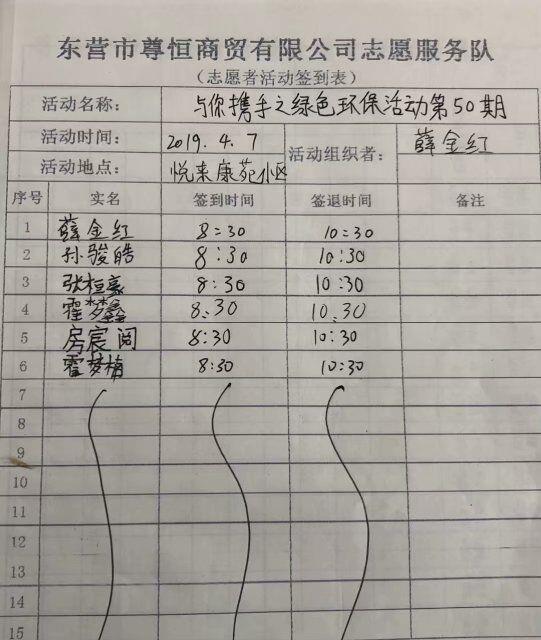 东营市尊恒商贸有限公司志愿服务队
（志愿者活动签到表）
活动名称： 与你携手之绿色环保活动第50期
活动时间： 2019.4.7 活动组织者： 薛金红
活动地点： 悦来康苑小区
序号 实名 签到时间 签退时间 备注
1 薛金红 8:30 10:30
2 孙骏皓 8:30 10:30
3 张桓豪 8:30 10:30
4 霍梦鑫 8:30 10:30
5 房宸阅 8:30 10:30
6 霍梦楠 8:30 10:30
7
8
9
10
11
12
13
14
15